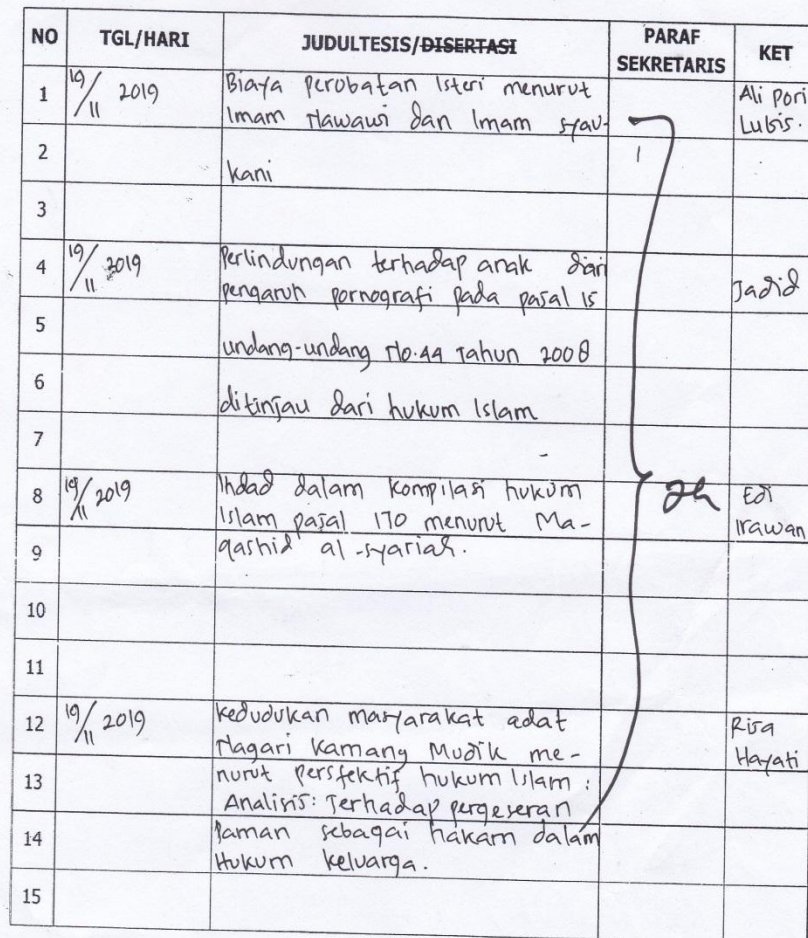 NO TGL/HARI JUDULTESIS/DISERTASI PARAF SEKRETARIS KET
1 19/11 2019 Biaya perobatan Isteri menurut Ali Pori
Imam Nawawi dan Imam syau- Lubis.
2
kani
3
4 19/11 2019 Perlindungan terhadap anak dari Jadid
pengaruh pornografi pada pasal 15
5
undang-undang No.44 Tahun 2008
6
ditinjau dari hukum Islam
7
8 19/11 2019 Ihdad dalam Kompilasi hukum Edi
Islam pasal 170 menurut Ma- Irawan
9 qashid al-syariah.
10
11
12 19/11 2019 Kedudukan masyarakat adat Risa
Nagari Kamang Mudik me- Hayati
13 nurut persfektif hukum Islam :
Analisis: Terhadap pergeseran
14 Paman sebagai hakam dalam
Hukum keluarga.
15